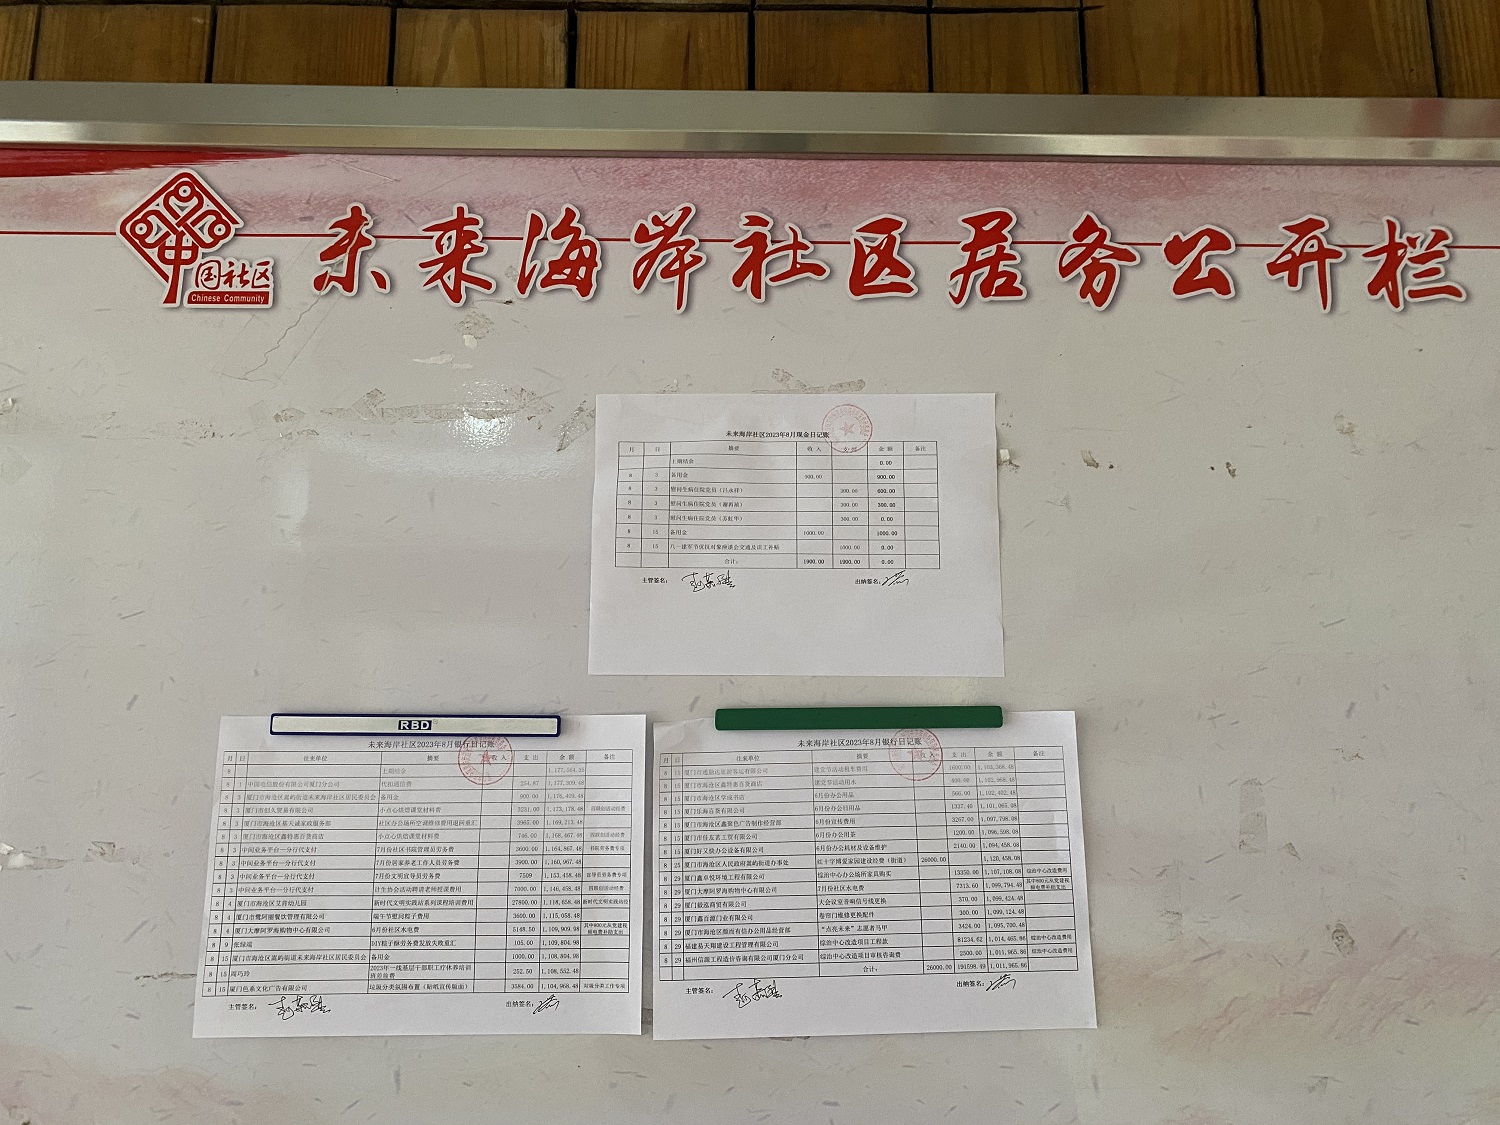 国社区
Chinese Community
未来海岸社区居务公开栏
未来海岸社区2023年8月现金日记账
月 日 摘要 收入 支出 金额 备注
上期结余 0.00
8 3 备用金 900.00 900.00
8 3 慰问生病住院党员 300.00 600.00
8 3 慰问生病住院党员 300.00 300.00
8 3 慰问生病住院党员 300.00 0.00
8 15 备用金 1000.00 1000.00
8 15 八一建军节优抚对象座谈会交通及误工补贴 1000.00 0.00
合计: 1900.00 1900.00 0.00
主管签名: 出纳签名:
RBD
未来海岸社区2023年8月银行日记账
月 日 往来单位 摘要 收入 支出 金额 备注
8 上期结余
8 1 中国电信股份有限公司厦门分公司 代扣通信费 254.87
8 3 厦门市海沧区嵩屿街道未来海岸社区居民委员会 备用金 900.00
8 3 小点心烘焙课堂材料费 3231.00 1,173,178.48
8 3 厦门市海沧区易天诚家政服务部 社区办公场所空调维修费用退回重汇 3965.00 1,169,213.48
8 3 厦门市海沧区鑫特惠百货商店 小点心烘焙课堂材料费 746.00 1,168,467.48
8 3 中间业务平台一分行代支付 7月份社区书院管理员劳务费 3600.00 1,164,867.48 书院劳务费专项
8 3 中间业务平台一分行代支付 7月份居家养老工作人员劳务费 3900.00 1,160,967.48
8 3 中间业务平台一分行代支付 7月份文明宣导员劳务费 7509 1,153,458.48 宣导员劳务费专项
8 3 中间业务平台一分行代支付 计生协会活动聘请老师授课费用 7000.00 1,146,458.48
8 4 厦门市海沧区艾肯幼儿园 新时代文明实践站系列课程培训费用 27800.00 1,118,658.48
8 4 厦门市鹭阿丽餐饮管理有限公司 端午节慰问粽子费用 3600.00 1,115,058.48
8 4 厦门大摩阿罗海购物中心有限公司 6月份社区水电费 5148.50 1,109,909.98
8 9 张绿端 DIY粽子酥劳务费发放失败重汇 105.00 1,109,804.98
8 15 厦门市海沧区嵩屿街道未来海岸社区居民委员会 备用金 1000.00 1,108,804.98
8 15 周巧玲 2023年一线基层干部职工疗休养培训班差旅费 252.50 1,108,552.48
8 15 厦门色素文化广告有限公司 垃圾分类氛围布置(贴纸宣传版面) 3584.00 1,104,968.48 垃圾分类工作专项
主管签名: 出纳签名:
未来海岸社区2023年8月银行日记账
月 日 往来单位 摘要 收入 支出 金额 备注
8 15 建党节活动租车费用 1600.00 1,103,368.48
8 15 厦门市海沧区鑫特惠百货商店 建党节活动用水 400.00 1,102,968.48
8 15 6月份办公用品 566.00 1,102,402.48
8 15 6月份办公日用品 1337.40 1,101,065.08
8 15 6月份宣传费用 3267.00 1,097,798.08
8 15 厦门市佳友茗工贸有限公司 6月份办公用茶 1200.00 1,096,598.08
8 15 厦门好又快办公设备有限公司 6月份办公机材及设备维护 2140.00 1,094,458.08
8 25 厦门市海沧区人民政府嵩屿街道办事处 红十字博爱家园建设经费(街道) 26000.00 1,120,458.08
8 29 厦门鑫卓悦环境工程有限公司 综治中心办公场所家具购买 13350.00 1,107,108.08 综治中心改造费用
8 29 厦门大摩阿罗海购物中心有限公司 7月份社区水电费 7313.60 1,099,794.48
8 29 大会议室音响信号线更换 370.00 1,099,424.48
8 29 厦门鑫百源门业有限公司 卷帘门维修更换配件 300.00 1,099,124.48
8 29 “点亮未来”志愿者马甲 3424.00 1,095,700.48
8 29 福建易天翔建设工程管理有限公司 综治中心改造项目工程款 81234.62 1,014,465.86 综治中心改造费用
8 29 福州信源工程造价咨询有限公司厦门分公司 综治中心改造项目审核咨询费 2500.00 1,011,965.86 综治中心改造费用
合计: 26000.00 191598.49 1,011,965.86
主管签名: 出纳签名: